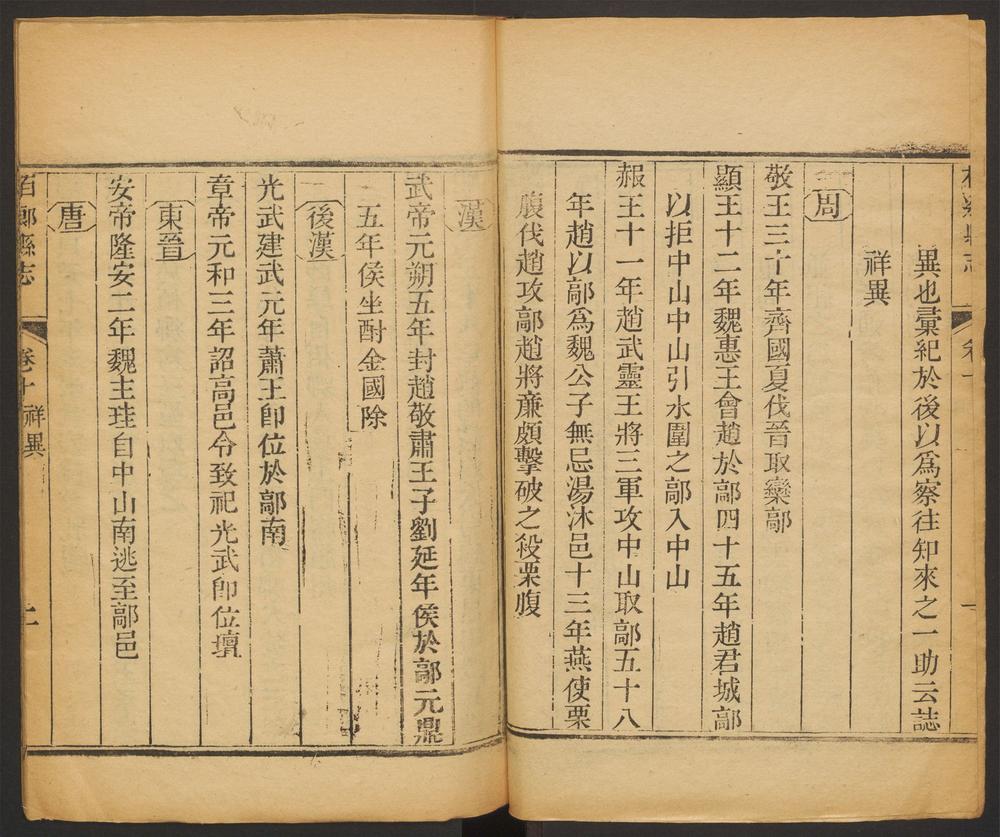 異也彚紀於後以爲察往知來之一助云誌
祥異
周
敬王三十年齊國夏伐晉取欒鄗
顯王十二年魏惠王會趙於鄗四十五年趙君城鄗
以拒中山中山引水圍之鄗入中山
赧王十一年趙武靈王將三軍攻中山取鄗五十八
年趙以鄗爲魏公子無忌湯沐邑十三年燕使栗
腹伐趙攻鄗趙將亷頗擊破之殺栗腹
漢
武帝元朔五年封趙敬肅王子劉延年侯於鄗元鼎
五年侯坐酎金國除
後漢
光武建武元年蕭王卽位於鄗南
章帝元和三年詔高邑令致祀光武卽位壇
東晉
安帝隆安二年魏主珪自中山南逃至鄗邑
唐
柏鄉縣志 卷十 祥異 二